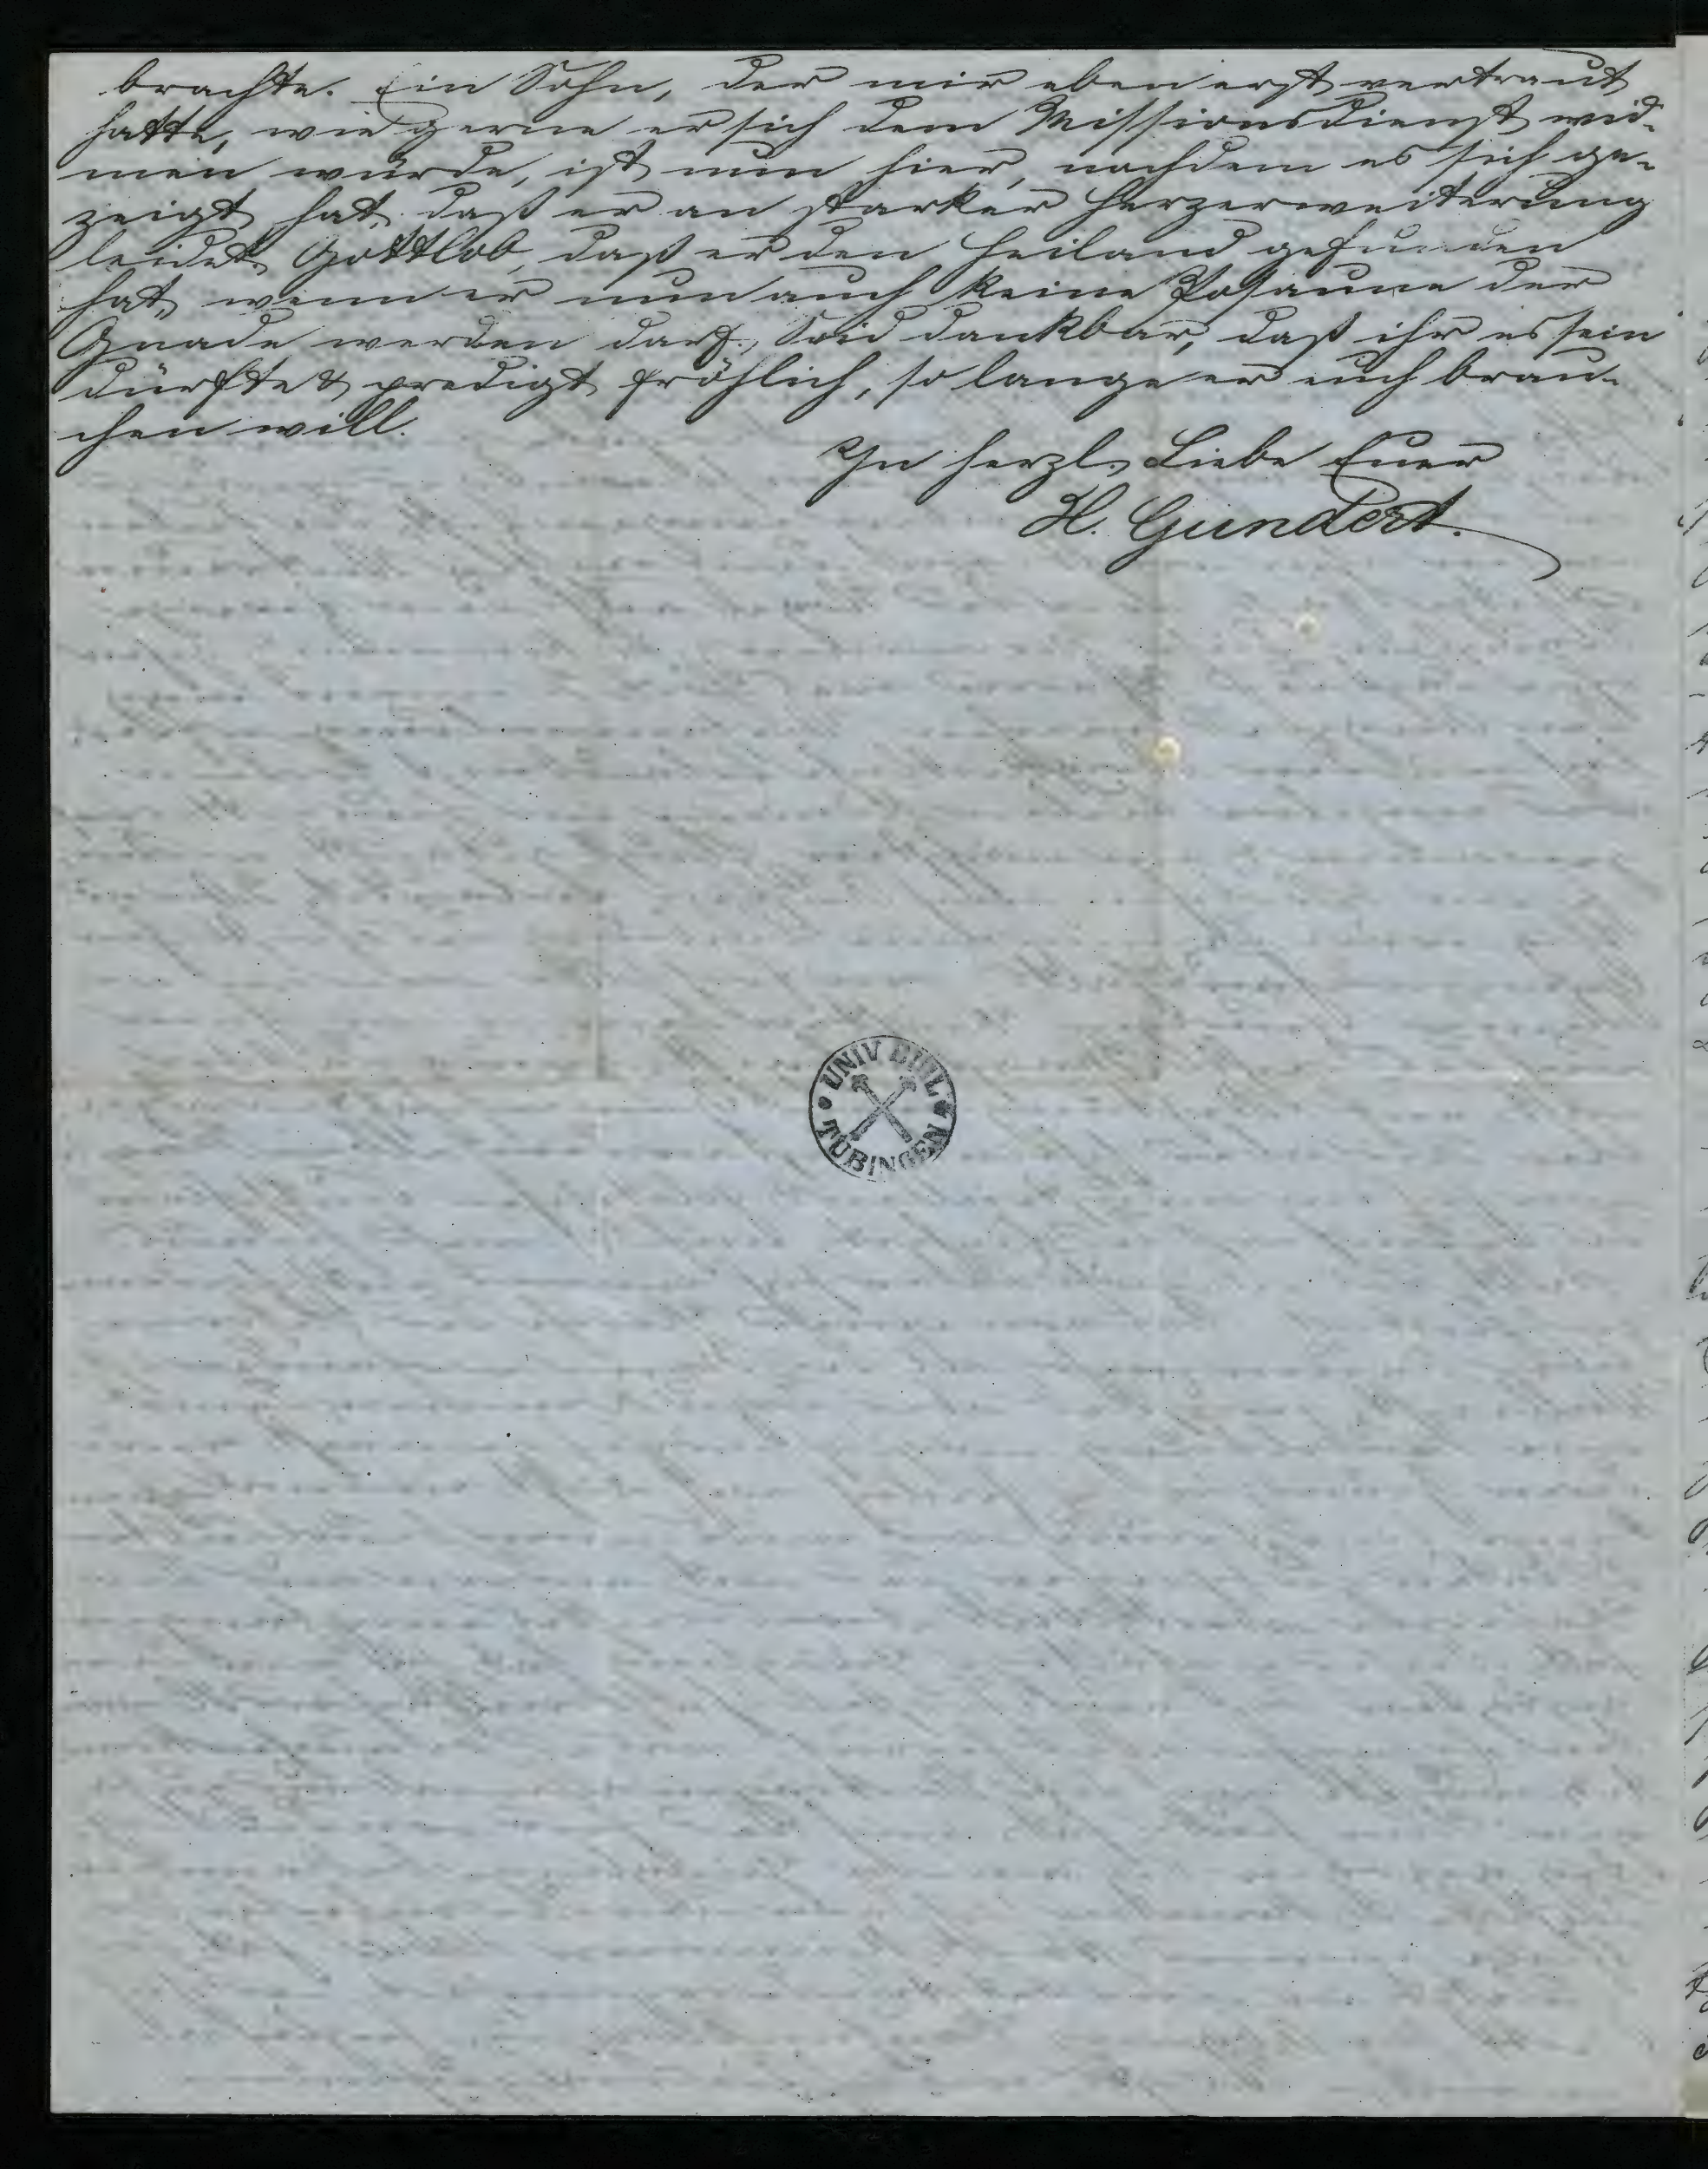 brachte. Ein Sohn, der mir eben erst vertraut
hatte, wie gerne er sich dem Missionsdienst wid-
men würde, ist nun hier, nachdem es sich ge-
zeigt hat, daß er an starker Herzerweiterung
leidet. Gottlob, daß er den Heiland gefunden
hat, wenn er nun auch keine Posaune der
Gnade werden darf. Seid dankbar, daß ihr es sein
dürfte & predigt fröhlich, so lange er euch brau-
chen will.
In herzl. Liebe Euer
H. Gundert.
UNIV BIBL
TÜBINGEN